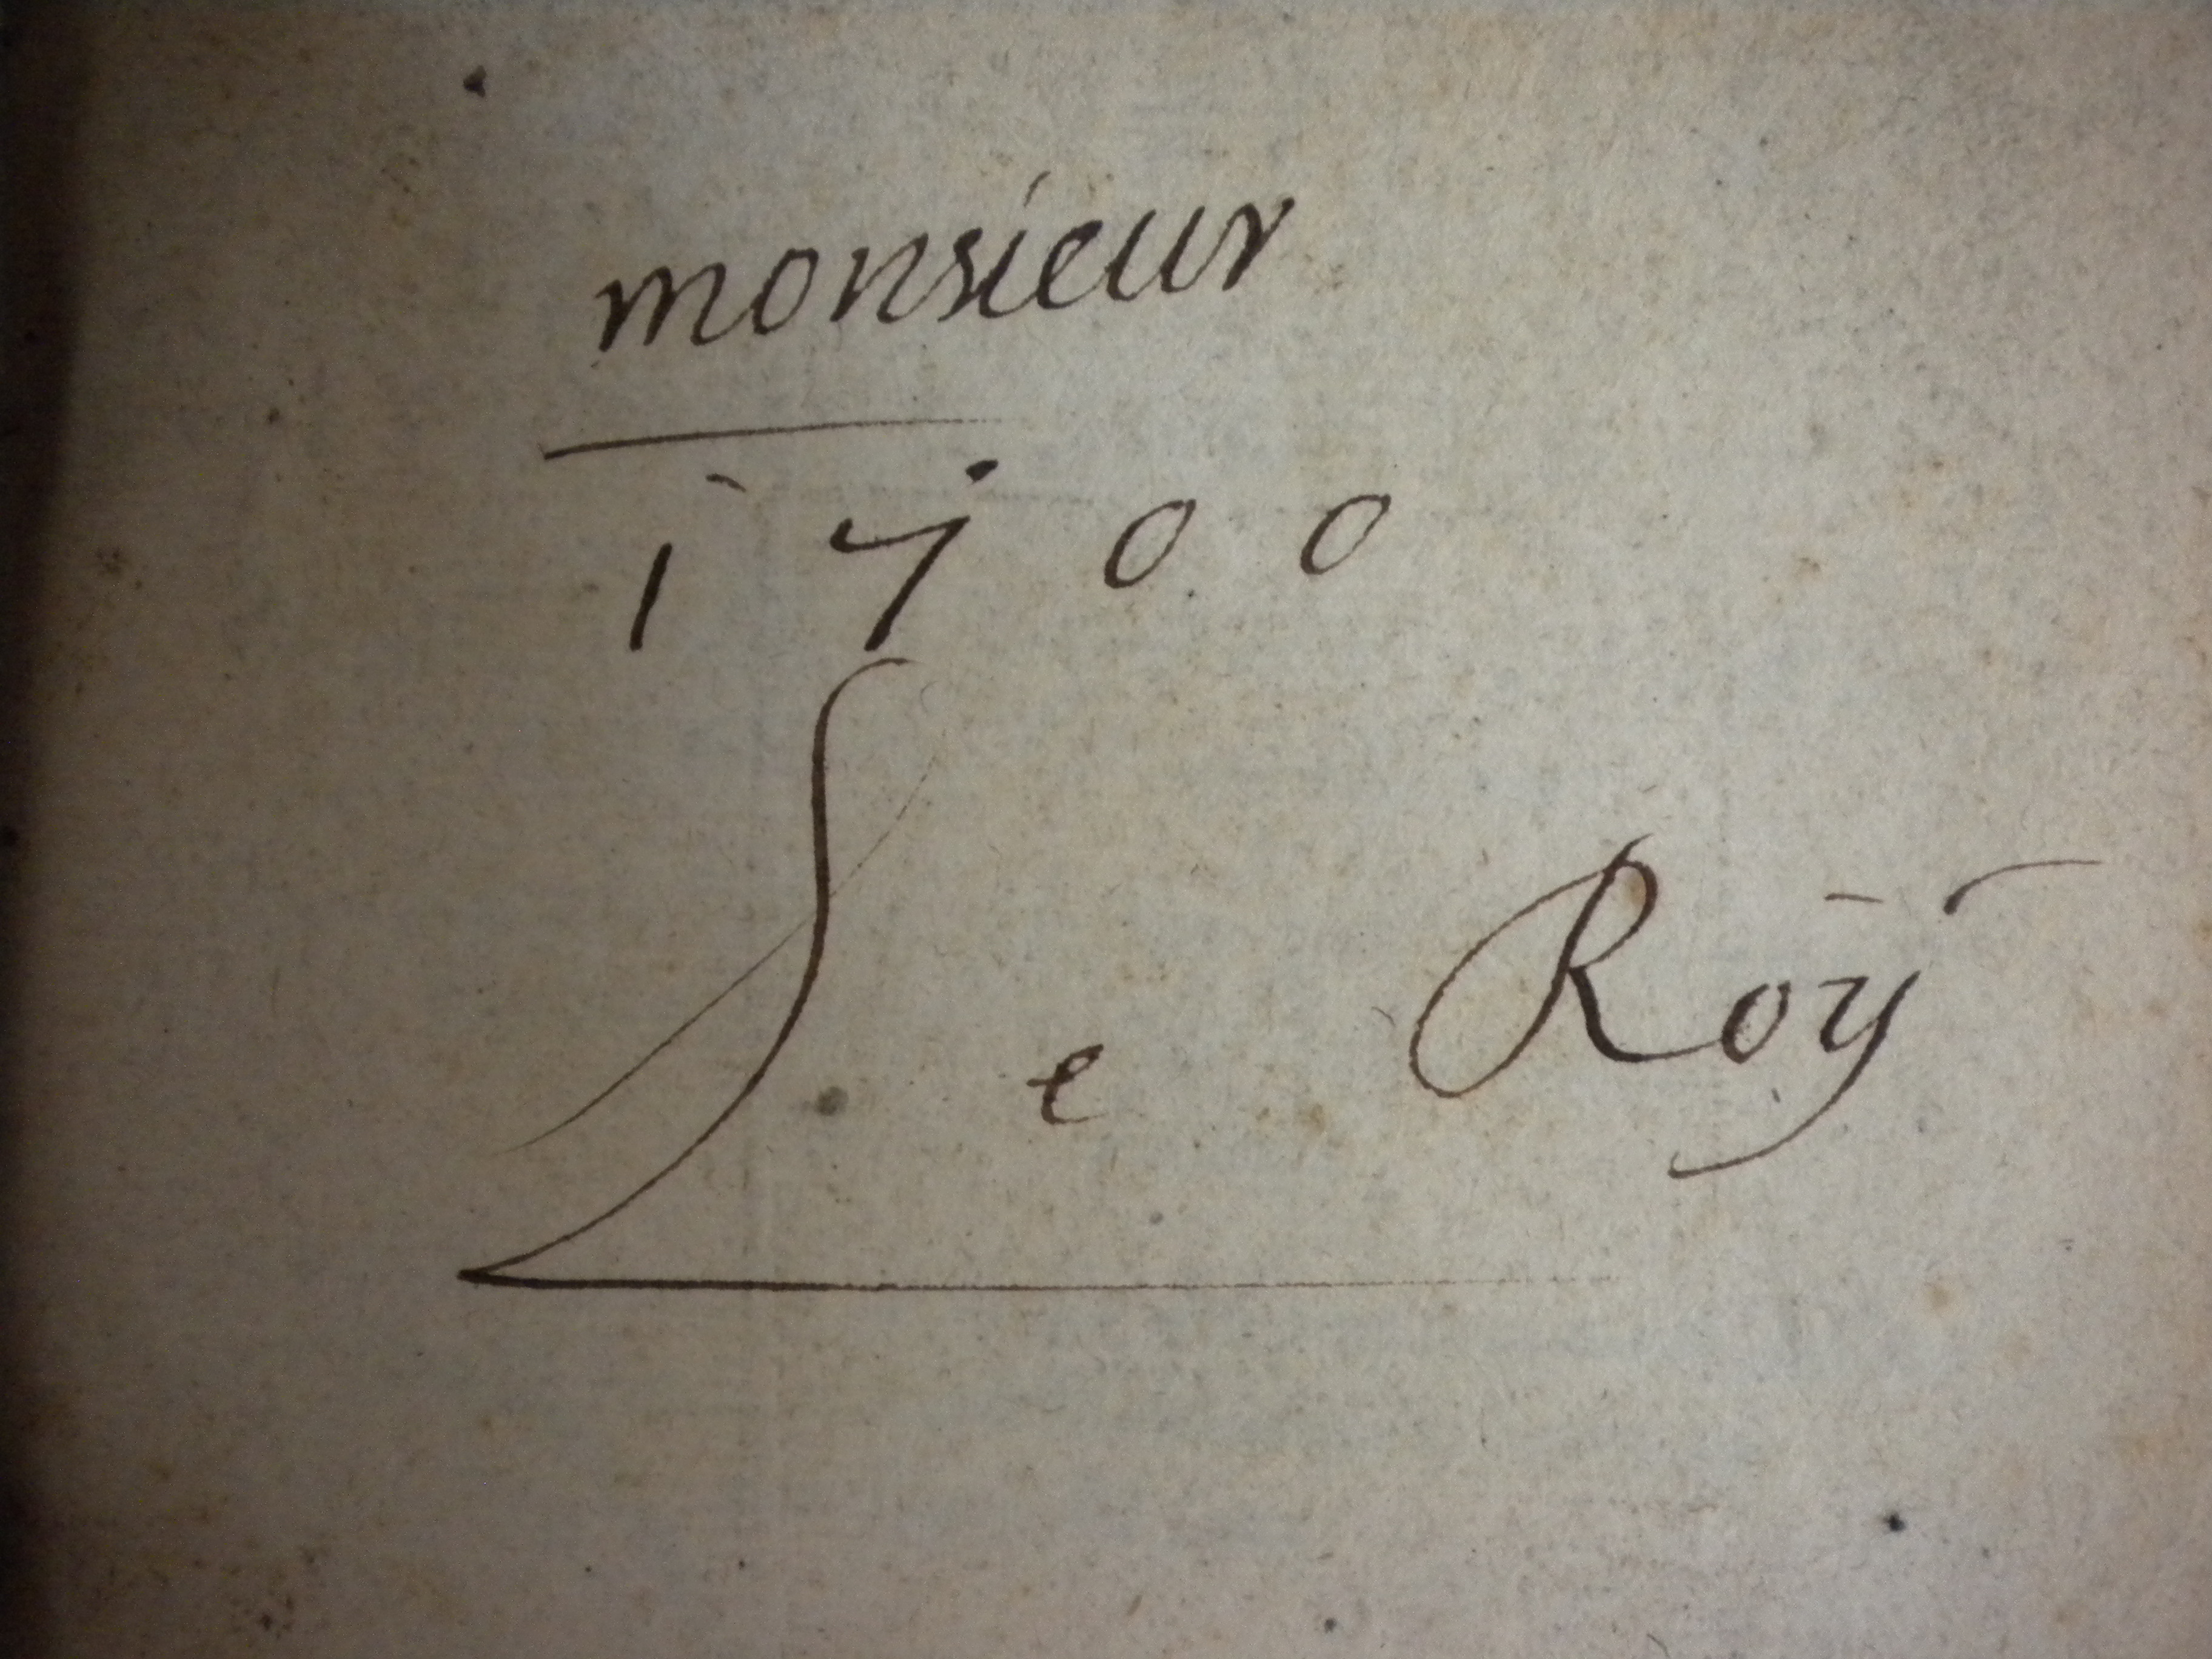 monsieur
1700
Le Roÿ